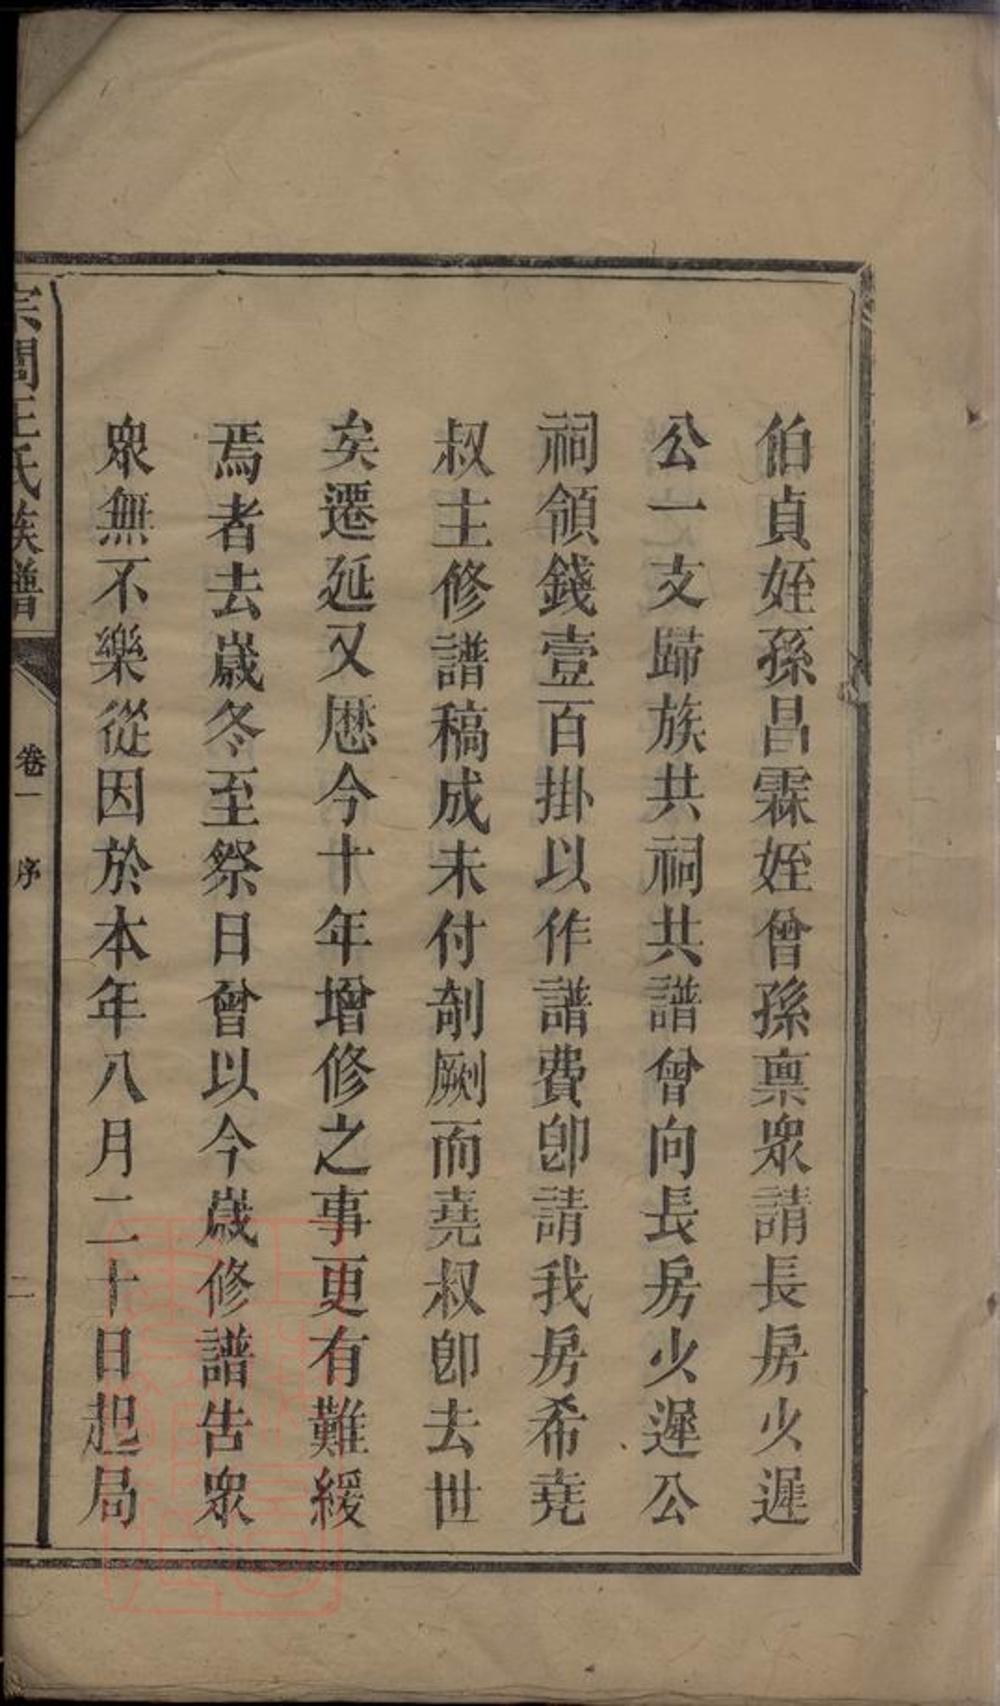 伯貞姪孫昌霖姪曾孫禀眾請長房火遲
公一支歸族共祠共譜曾向長房火遲公
祠領錢壹百掛以作譜費卽請我房希堯
叔主修譜稿成未付剞劂而堯叔卽去世
矣遷延又歷今十年增修之事更有難緩
焉者去歲冬至祭日曾以今歲修譜告眾
眾無不樂從因於本年八月二十日起局
王氏族譜
卷一
序
二